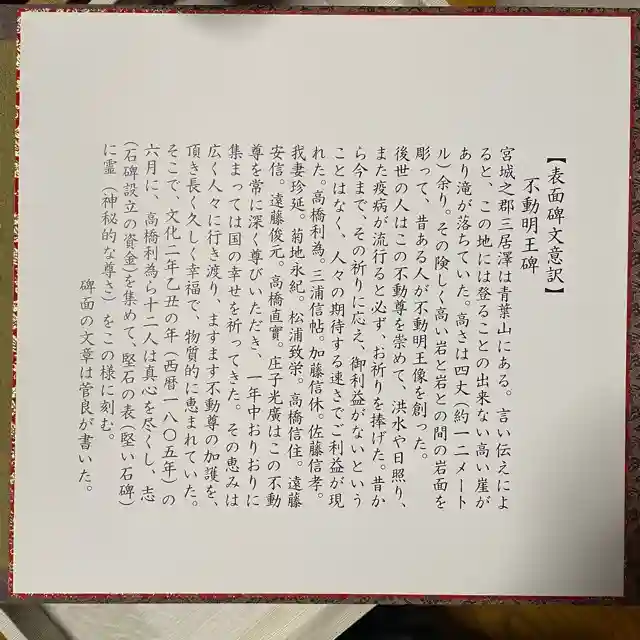 【表面碑文意訳】
不動明王碑
宮城之郡三居澤は青葉山にある。言い伝えによ
ると、この地には登ることの出来ない高い崖が
あり滝が落ちていた。高さは四丈(約一二メート
ル)余り。その険しく高い岩と岩との間の岩面を
彫って、昔ある人が不動明王像を創った。
後世の人はこの不動尊を崇めて、洪水や日照り、
また疫病が流行ると必ず、お祈りを捧げた。昔か
ら今まで、その祈りに応え、御利益がないという
ことはなく、人々の期待する速さでご利益が現
れた。高橋利為。三浦信帖。加藤信休。佐藤信孝。
我妻珍延。菊地永紀。松浦致栄。高橋信住。遠藤
安信。遠藤俊元。高橋直實。庄子光廣はこの不動
尊を常に深く尊びいただき、一年中おりおりに
集まっては国の幸せを祈ってきた。その恵みは
広く人々に行き渡り、ますます不動尊の加護を、
頂き長く久しく幸福で、物質的に恵まれていた。
そこで、文化二年乙丑の年(西暦一八〇五年)の
六月に、高橋利為ら十二人は真心を尽くし、志
(石碑設立の資金)を集めて、堅石の表(堅い石碑)
に霊(神秘的な尊さ)をこの様に刻む。
碑面の文章は菅良が書いた。